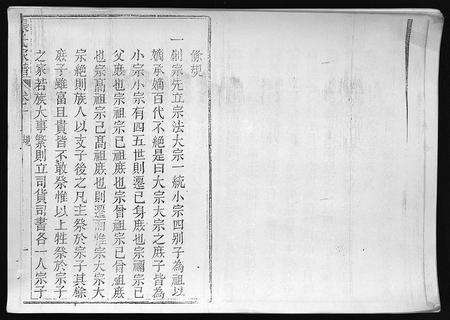 條規
一剏宗先立宗法大宗一統小宗四别子為祖以
嫡承嫡百代不絶是曰大宗大宗之庶子皆為
小宗小宗有四五世則遷己身庶也宗禰宗己
父庶也宗祖宗己祖庶也宗曾祖宗己曾祖庶
也宗高祖宗己高祖庶也則遷而惟宗大宗大
宗絶則族人以支子後之凡主祭於宗子其餘
庶子雖富且貴皆不敢祭惟以上牲祭於宗子
之家若族大事繁則立司貨司書各一人宗子
氏家譜